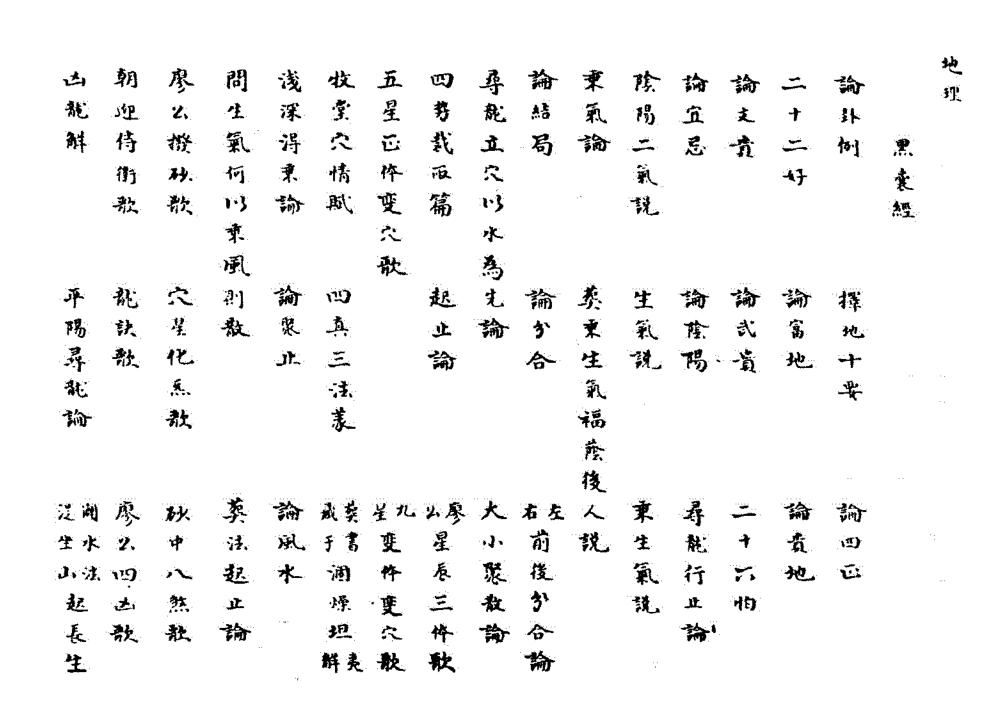 地理
黑囊經
論卦例 擇地十要 論四正
二十二好 論富地 論貴地
論文貴 論武貴 二十六怕
論宜忌 論陰陽 尋龍行止論
陰陽二氣説 生氣説 乘生氣説
乘氣論 葬乘生氣福蔭後人説
論結局 論分合 左右前後分合論
尋龍立穴以水為先論 大小聚散論
四勢裁 篇 起止論 廖公星辰三体歌
五星正体變穴歌 九星變体變穴歌
牧堂穴情賦 四真三法 葬書 于 燥坦夷解
淺深得乘論 論聚止 論風水
問生氣何以乘風則散 葬法起止論
廖公撥砂歌 穴星化 歌 砂中八煞歌
朝迎侍衛歌 龍訣歌 廖公四凶歌
凶龍解 平陽尋龍論 水法 坐山起長生